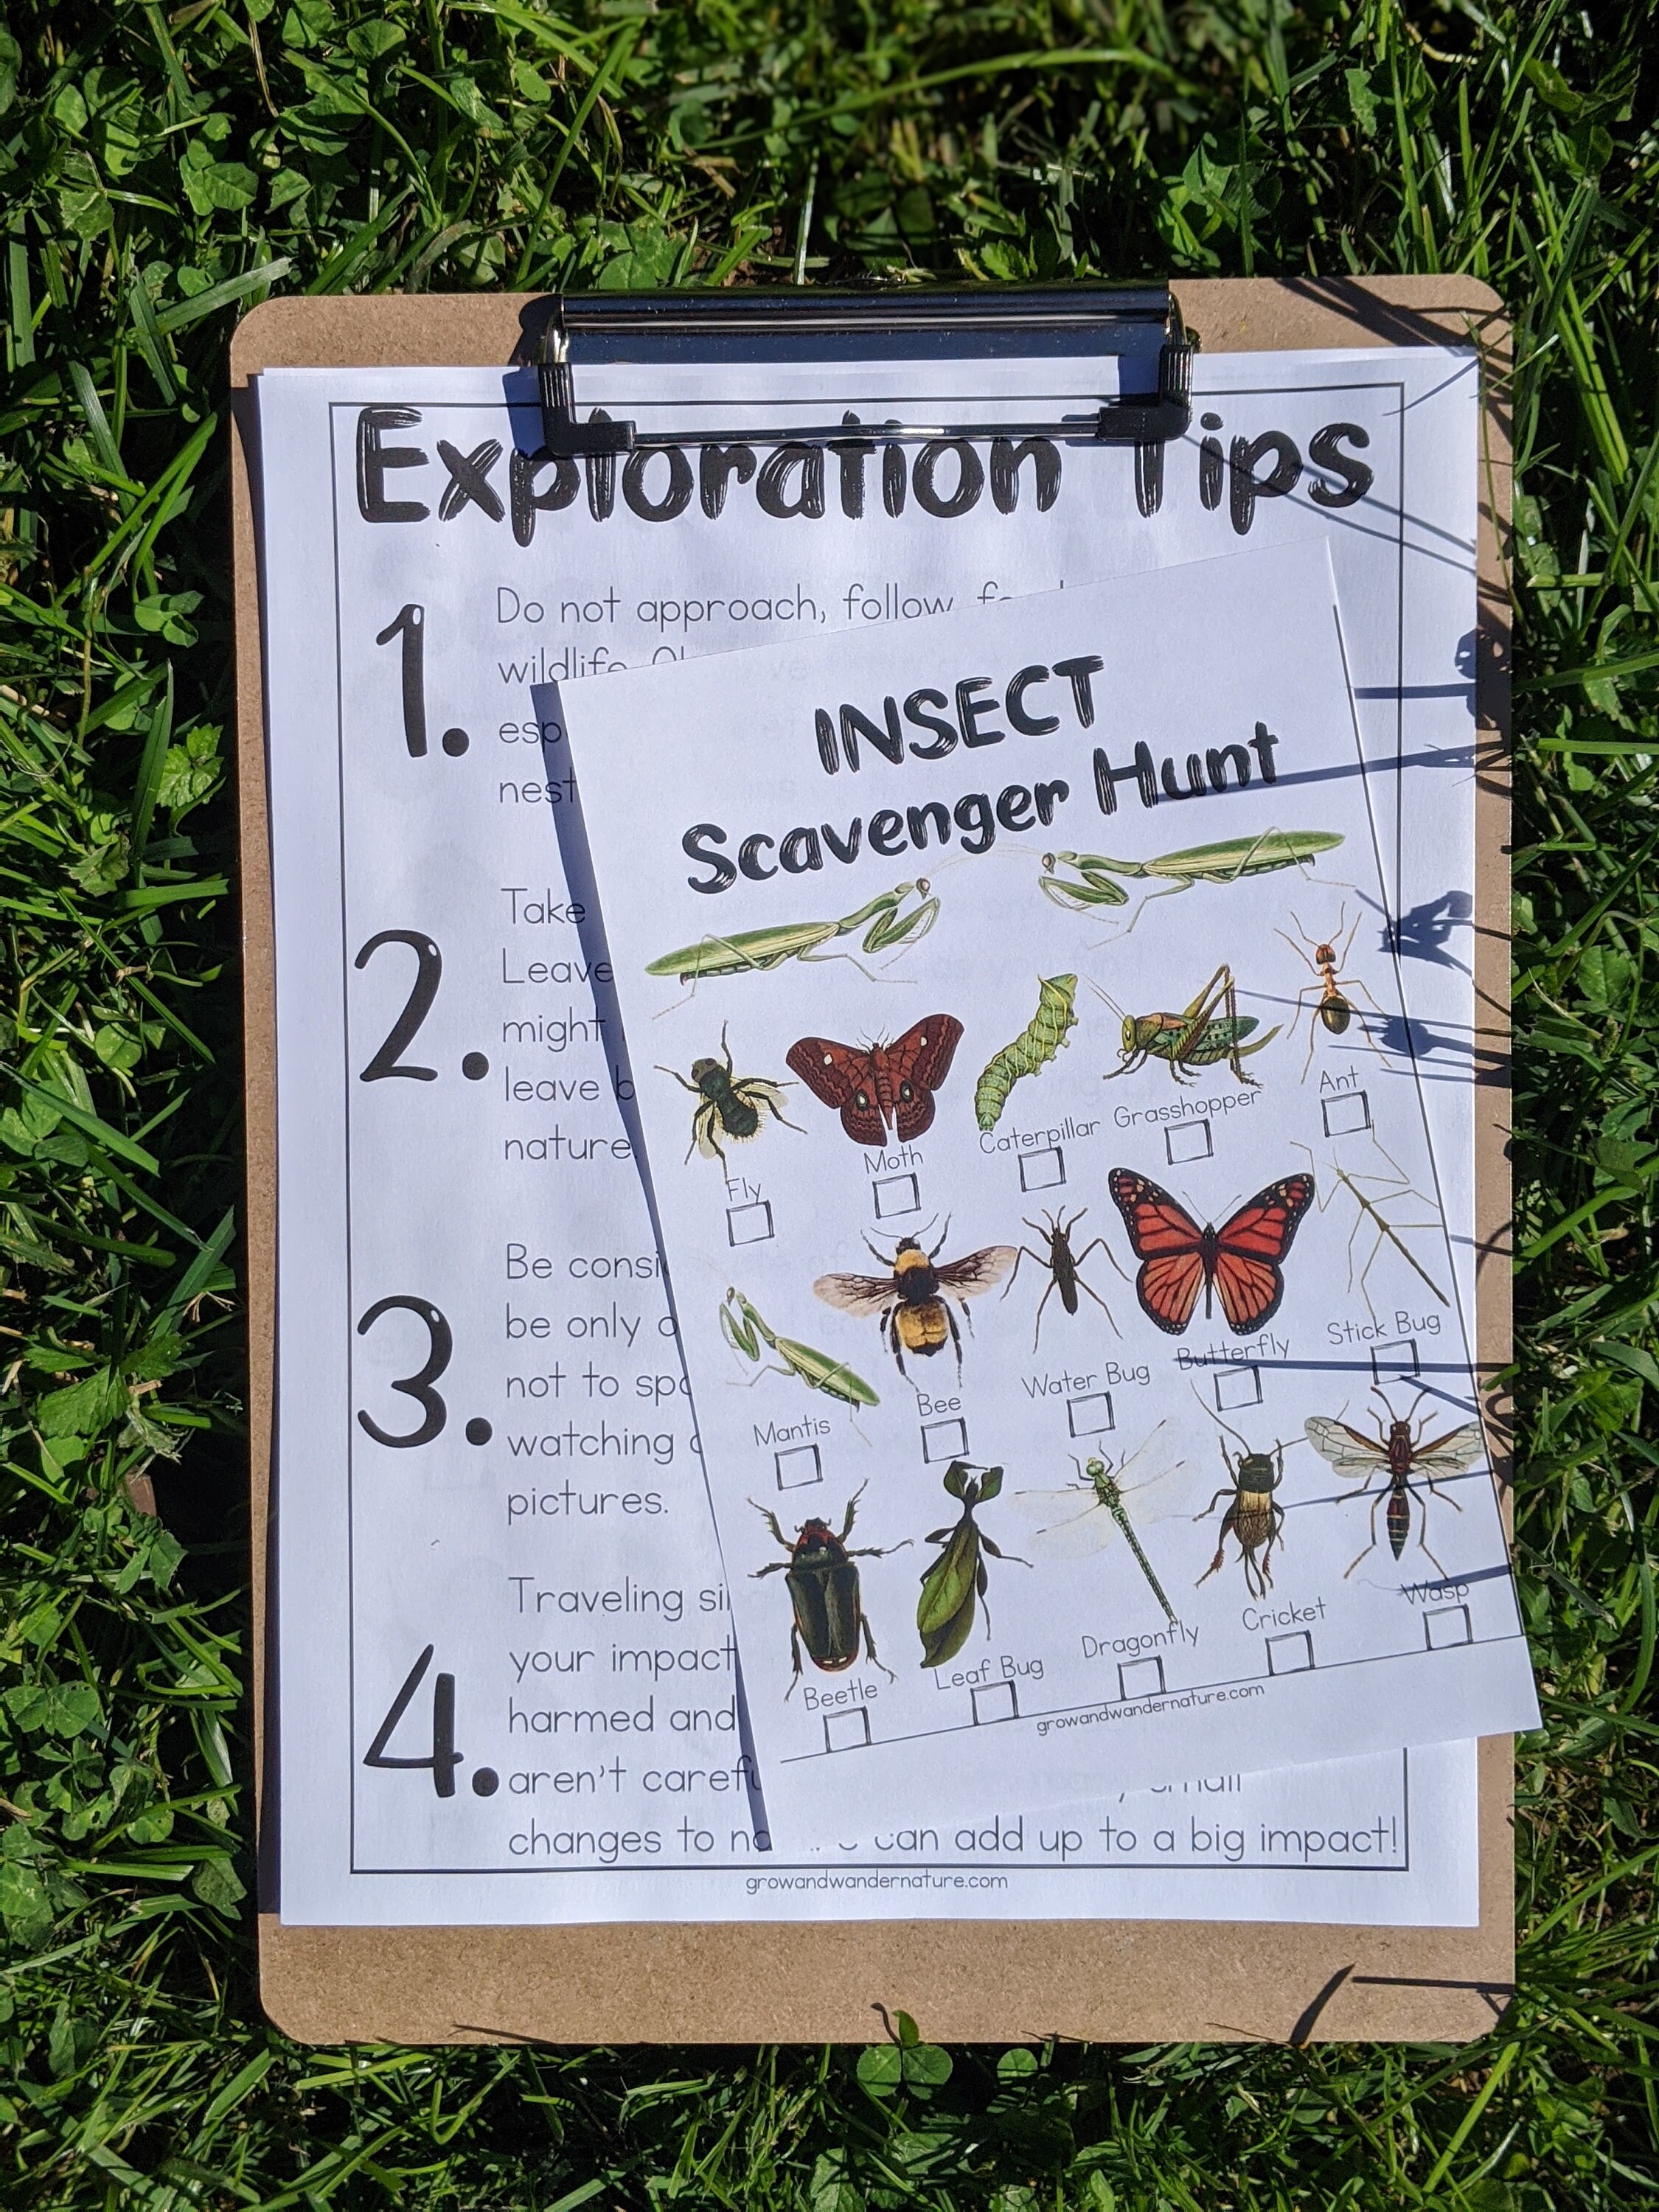 Exploration Tips
1.
Do not approach, follow,
wildlife.
nest
2.
Take
Leave
might
leave
nature
3.
Be
be only
not to
watching
pictures.
4.
Traveling
your impact
harmed and
aren't
changes to can add up to a big impact!
growandwandernature.com
INSECT
Scavenger Hunt
Fly
Moth
Caterpillar
Grasshopper
Ant
Mantis
Bee
Water Bug
Butterfly
Stick Bug
Beetle
Leaf Bug
Dragonfly
Cricket
Wasp
growandwandernature.com